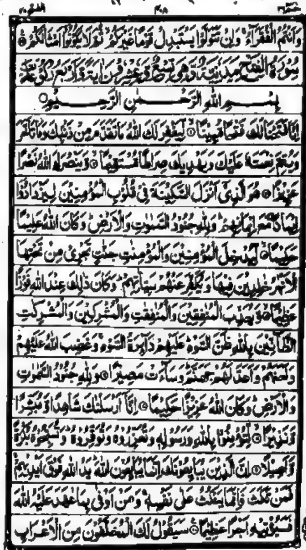 وَأَنتُمُ الْفُقَرَاءُ وَإِن تَتَوَلَّوْا يَسْتَبْدِلْ قَوْمًا غَيْرَكُمْ ثُمَّ لَا يَكُونُوا أَمْثَالَكُمْ
سُورَةُ الْفَتْحِ مَدَنِيَّةٌ وَهِيَ
بِسْمِ اللهِ الرَّحْمٰنِ الرَّحِيمِ
إِنَّا فَتَحْنَا لَكَ فَتْحًا مُّبِينًا لِّيَغْفِرَ لَكَ اللهُ مَا تَقَدَّمَ مِن ذَنبِكَ وَمَا تَأَخَّرَ
وَيُتِمَّ نِعْمَتَهُ عَلَيْكَ وَيَهْدِيَكَ صِرَاطًا مُّسْتَقِيمًا وَيَنصُرَكَ اللهُ نَصْرًا
عَزِيزًا هُوَ الَّذِي أَنزَلَ السَّكِينَةَ فِي قُلُوبِ الْمُؤْمِنِينَ لِيَزْدَادُوا
إِيمَانًا مَّعَ إِيمَانِهِمْ وَلِلَّهِ جُنُودُ السَّمٰوٰتِ وَالْأَرْضِ وَكَانَ اللهُ عَلِيمًا
حَكِيمًا لِّيُدْخِلَ الْمُؤْمِنِينَ وَالْمُؤْمِنٰتِ جَنّٰتٍ تَجْرِي مِن تَحْتِهَا
الْأَنْهٰرُ خٰلِدِينَ فِيهَا وَيُكَفِّرَ عَنْهُمْ سَيِّئَاتِهِمْ وَكَانَ ذٰلِكَ عِندَ اللهِ فَوْزًا
عَظِيمًا وَيُعَذِّبَ الْمُنٰفِقِينَ وَالْمُنٰفِقٰتِ وَالْمُشْرِكِينَ وَالْمُشْرِكٰتِ
الظَّانِّينَ بِاللهِ ظَنَّ السَّوْءِ عَلَيْهِمْ دَائِرَةُ السَّوْءِ وَغَضِبَ اللهُ عَلَيْهِمْ
وَلَعَنَهُمْ وَأَعَدَّ لَهُمْ جَهَنَّمَ وَسَاءَتْ مَصِيرًا وَلِلَّهِ جُنُودُ السَّمٰوٰتِ
وَالْأَرْضِ وَكَانَ اللهُ عَزِيزًا حَكِيمًا إِنَّا أَرْسَلْنٰكَ شَاهِدًا وَمُبَشِّرًا
وَنَذِيرًا لِّتُؤْمِنُوا بِاللهِ وَرَسُولِهِ وَتُعَزِّرُوهُ وَتُوَقِّرُوهُ وَتُسَبِّحُوهُ بُكْرَةً
وَأَصِيلًا إِنَّ الَّذِينَ يُبَايِعُونَكَ إِنَّمَا يُبَايِعُونَ اللهَ يَدُ اللهِ فَوْقَ أَيْدِيهِمْ
فَمَن نَّكَثَ فَإِنَّمَا يَنكُثُ عَلَىٰ نَفْسِهِ وَمَنْ أَوْفَىٰ بِمَا عٰهَدَ عَلَيْهُ اللهَ
فَسَيُؤْتِيهِ أَجْرًا عَظِيمًا سَيَقُولُ لَكَ الْمُخَلَّفُونَ مِنَ الْأَعْرَابِ